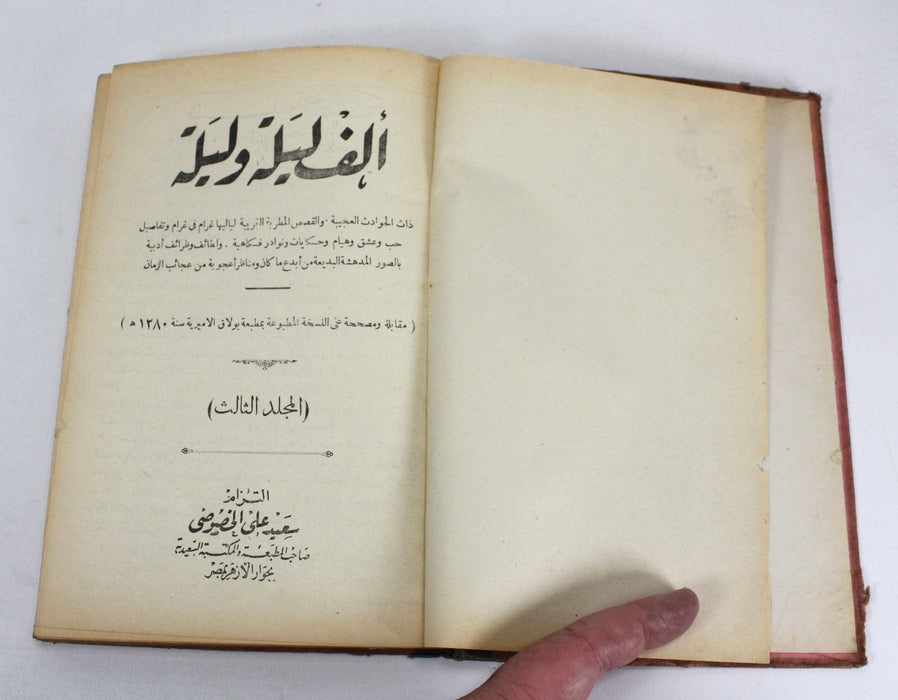 ألف ليلة وليلة
ذات الحوادث العجيبة . والقصص المطربة الغريبة لياليها غرام فى غرام وتفاصيل
حب وعشق وهيام وحكايات ونوادر فكاهية . ولطائف وظرائف أدبية
بالصور المدهشة البديعة من أبدع ما كان ومناظر أعجوبة من عجائب الزمان
( مقابلة ومصححة على النسخة المطبوعة بمطبعة بولاق الاميرية سنة ١٢٨٠ ه )
(المجلد الثالث)
التزام
سعيد على الخصوصى
صاحب المطبعة والمكتبة السعيدية
بجوار الأزهر بمصر